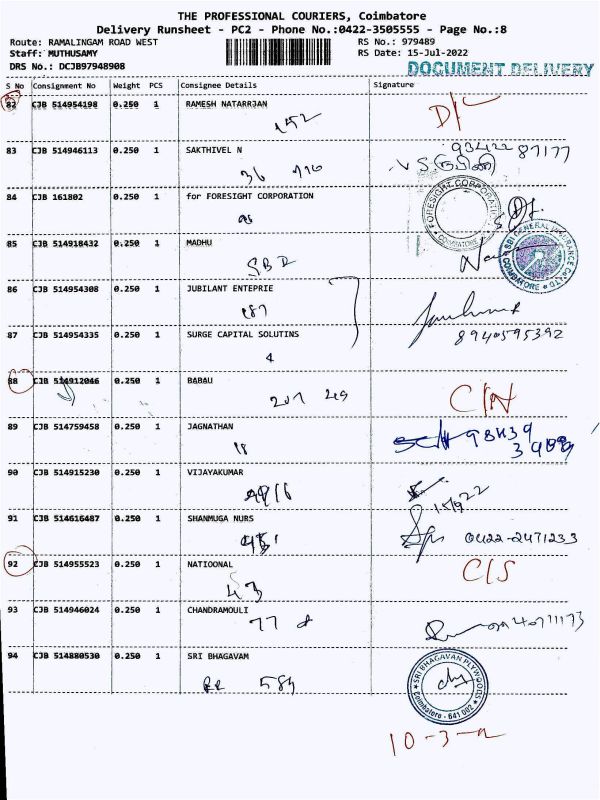 THE PROFESSIONAL COURIERS, Coimbatore
Delivery Runsheet - PC2 - Phone No.:0422-3505555 - Page No.:8
Route: RAMALINGAM ROAD WEST RS No.: 979489
Staff: MUTHUSAMY RS Date: 15-Jul-2022
DRS No.: DCJB97948908 DOCUMENT DELIVERY
S No Consignment No Weight PCS Consignee Details Signature
82 CJB 514954198 0.250 1 RAMESH NATARRJAN D/L
152
83 CJB 514946113 0.250 1 SAKTHIVEL N 93422 87177
36
84 CJB 161802 0.250 1 for FORESIGHT CORPORATION
FORESIGHT CORPORATION COIMBATORE
85 CJB 514918432 0.250 1 MADHU
SBI GENERAL INSURANCE Co LTD COIMBATORE
86 CJB 514954308 0.250 1 JUBILANT ENTEPRIE
187
87 CJB 514954335 0.250 1 SURGE CAPITAL SOLUTINS 8940595392
4
88 CJB 514912046 0.250 1 BABAU C/N
207 49
89 CJB 514759458 0.250 1 JAGNATHAN
18
90 CJB 514915230 0.250 1 VIJAYAKUMAR
91 CJB 514616487 0.250 1 SHANMUGA NURS 0422-2471233
92 CJB 514955523 0.250 1 NATIOONAL C/S
43
93 CJB 514946024 0.250 1 CHANDRAMOULI
77
94 CJB 514880530 0.250 1 SRI BHAGAVAM
RR 584
SRI BHAGAVAN PLYWOODS Coimbatore - 641 002
10-3-2